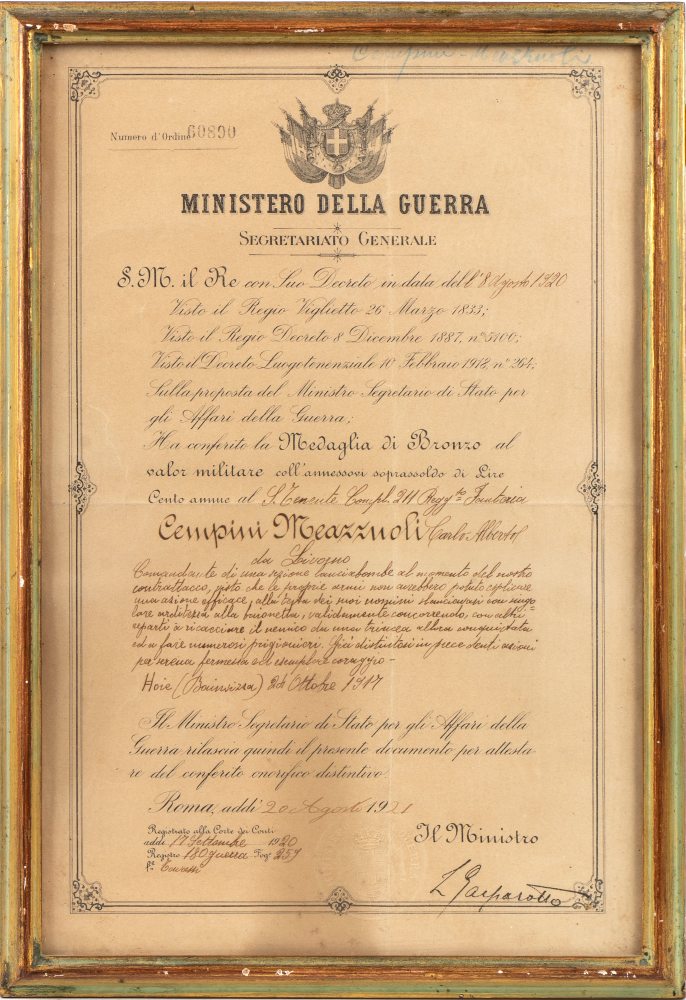 Cempini-Meazzuoli
Numero d'Ordine 60890
MINISTERO DELLA GUERRA
SEGRETARIATO GENERALE
S. M. il Re con Suo Decreto in data dell'8 Agosto 1920
Visto il Regio Viglietto 26 Marzo 1833;
Visto il Regio Decreto 8 Dicembre 1887, nº 5100;
Visto il Decreto Luogotenenziale 10 Febbraio 1918, nº 264;
Sulla proposta del Ministro Segretario di Stato per
gli Affari della Guerra;
Ha conferito la Medaglia di Bronzo al
valor militare coll'annessovi soprassoldo di Lire
Cento annue al S. Tenente Compl. 211 Reggto Fanteria
Cempini Meazzuoli Carlo Alberto
da Livorno
Comandante di una sezione lanciabombe al momento del nostro
contrattacco, visto che le proprie armi non avrebbero potuto esplicare
una azione efficace, alla testa dei suoi uomini slanciavasi con singo=
lare arditezza alla baionetta, validamente concorrendo, con altri
reparti a ricacciare il nemico da una trincea allora conquistata
ed a fare numerosi prigionieri. Già distintosi in precedenti azioni
per serena fermezza ed esemplare coraggio-
Hoie (Bainsizza) 24 Ottobre 1917
Il Ministro Segretario di Stato per gli Affari della
Guerra rilascia quindi il presente documento per attesta-
re del conferito onorifico distintivo.
Roma, addì 20 Agosto 1921
Registrato alla Corte dei Conti
addì 17 Settembre 1920
Registro 180 guerra Fogº 257
Il Ministro
L Gasparotto